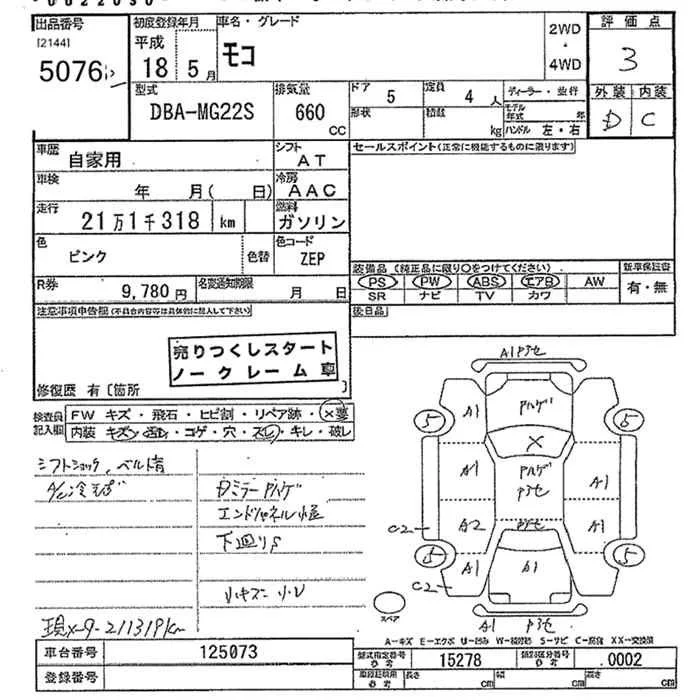 出品番号 初度登録年月 車名・グレード 評価点
[2144] 平成 モコ 2WD
5076 18 5月 ・ 3
4WD
型式 排気量 ドア 5 定員 4人 ディーラー・並行 外装 内装
DBA-MG22S 660 CC 形状 積載 kg モデル年式 年 D C
ハンドル 左・右
車歴 自家用 シフト AT セールスポイント(正常に機能するものに限ります)
車検 年 月( 日) 冷房 AAC
走行 21万1千318 km 燃料 ガソリン
色 ピンク 色替 色コード ZEP
装備品 (純正品に限り○をつけてください) 新車保証書
R券 9,780円 名変通知期限 月 日 PS PW ABS エアB AW 有・無
SR ナビ TV カワ
注意事項申告欄(不具合内容等は具体的に記入して下さい) 後日品
売りつくしスタート
ノークレーム車
修復歴 有〔箇所 〕
検査員記入欄 FW キズ・飛石・ヒビ割・リペア跡・×要
内装 キズ・汚れ・コゲ・穴・スレ・キレ・破レ
シフトショック、ベルト音
Dミラーハゲ
下回りS
現メーター211319km
A1
A1
5
5
A1
A1
A2
A1
C2
5
5
A1
C2
A1
A1
スペア
A-キズ E-エクボ U-凹み W-補修跡 S-サビ C-腐食 XX-交換済
車台番号 125073 型式指定番号 参考 15278 類別区分番号 参考 .0002
登録番号 車庫証明用 参考 長さ cm 幅 cm 高さ cm